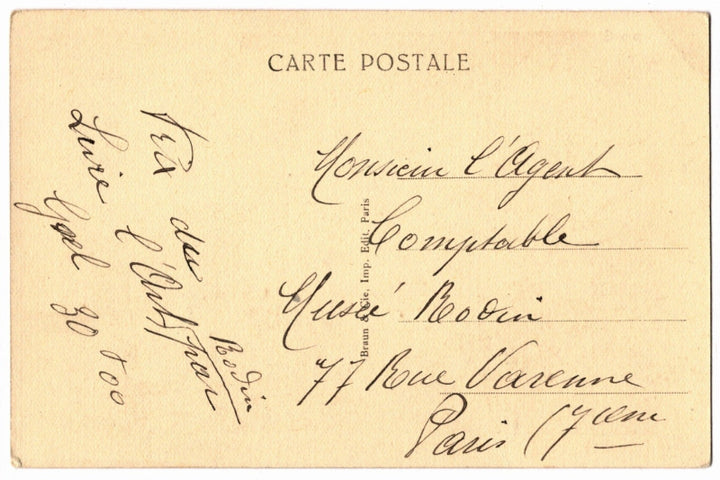 CARTE POSTALE
Prix du
Livre l'Art par
Rodin
30 + 00
Braun & Cie, Imp. Edit. Paris
Monsieur l'Agent
Comptable
Musée Rodin
77 Rue Varenne
Paris (7em